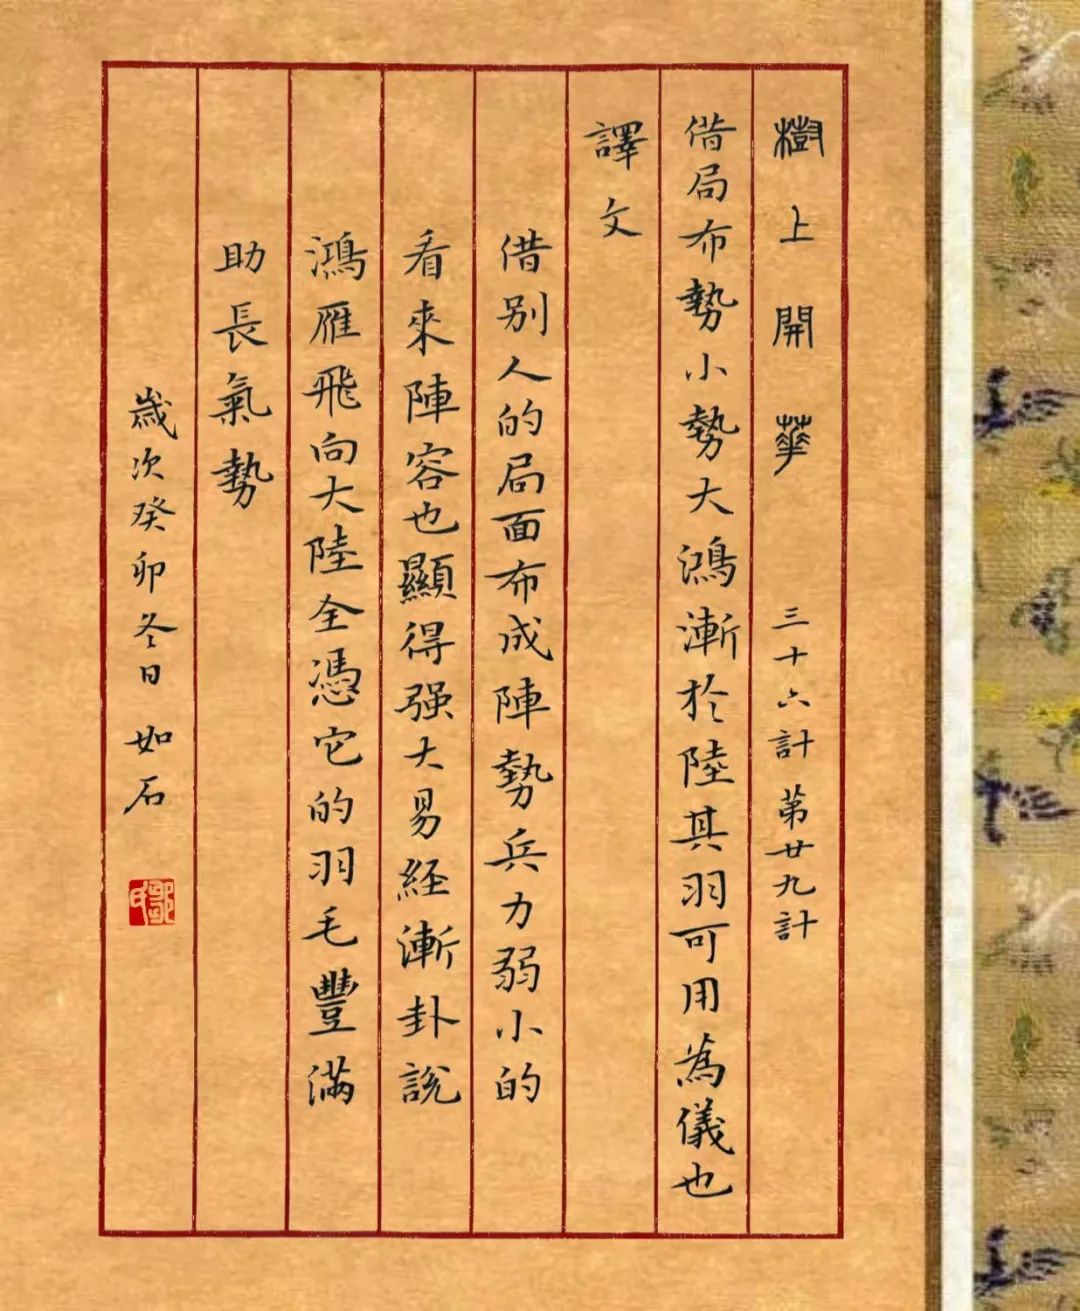 樹上開華 三十六計第廿九計
借局布勢小勢大鴻漸於陸其羽可用為儀也
譯文
借别人的局面布成陣勢兵力弱小的
看來陣容也顯得强大易經漸卦說
鴻雁飛向大陸全憑它的羽毛豐滿
助長氣勢
歲次癸卯冬日如石